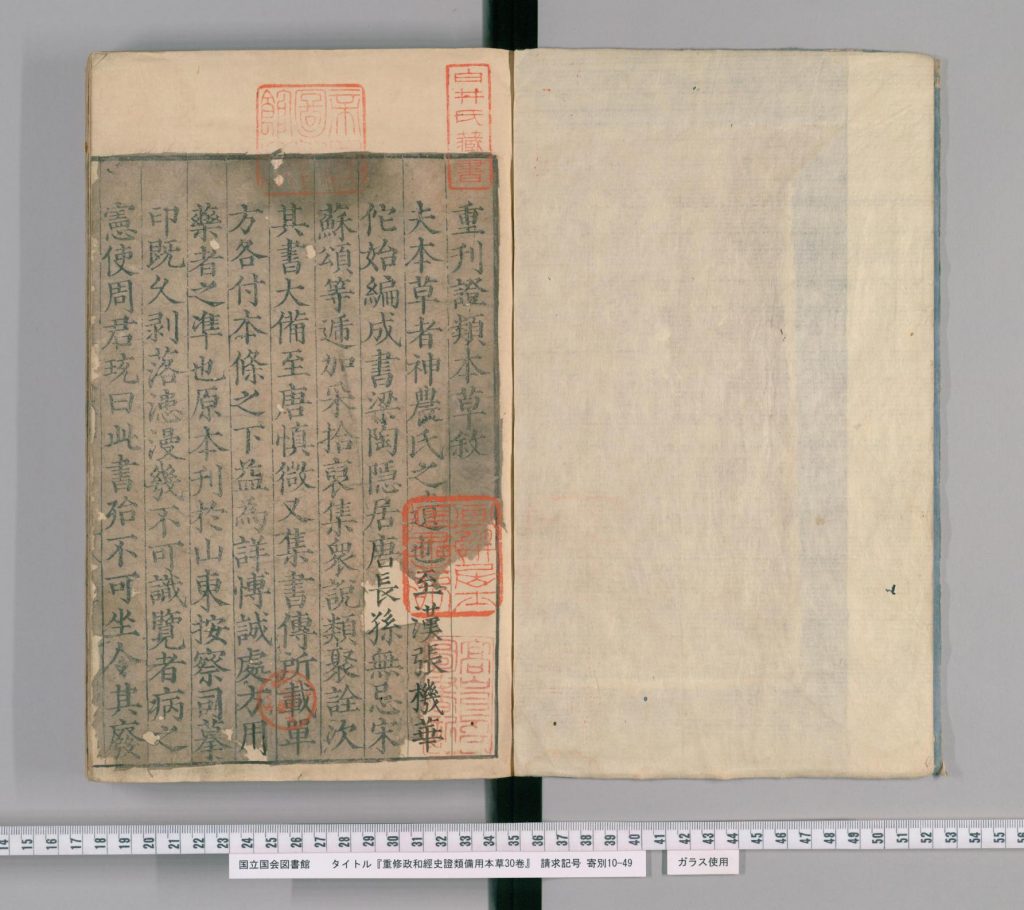 重刊證類本草敘
夫本草者神農氏之遺也至漢張機華
佗始編成書梁陶隱居唐長孫無忌宋
蘇頌等遞加采拾裒集衆說類聚詮次
其書大備至唐慎微又集書傳所載單
方各付本條之下益為詳博誠處方用
藥者之準也原本刊於山東按察司摹
印既久剥落漶漫幾不可識覽者病之
憲使周君珫曰此書殆不可坐令其廢
白井氏藏書
14 15 16 17 18 19 20 21 22 23 24 25 26 27 28 29 30 31 32 33 34 35 36 37 38 39 40 41 42 43 44 45 46 47 48 49 50 51 52 53 54 55 56
国立国会図書館 タイトル『重修政和經史證類備用本草30巻』 請求記号 寄別10-49
ガラス使用